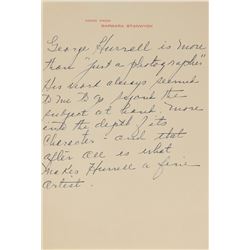 NOTES FROM
BARBARA STANWYCK
George Hurrell is more
than "just a photographer"
His work always seemed
to me to go beyond the
subject at hand. More
into the depth & its
character - and that
after all is what
makes Hurrell a fine
artist.